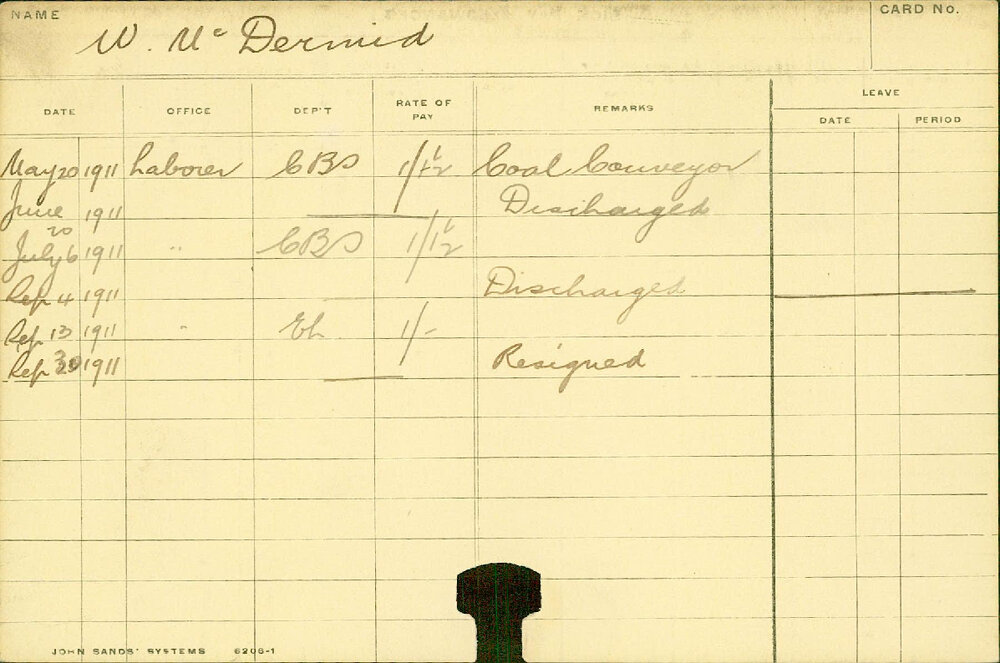 NAME
W. Mc Dermid
CARD No.
DATE OFFICE DEP'T RATE OF PAY REMARKS LEAVE
DATE PERIOD
May 20 1911 Laborer CBS 1/1½ Coal Conveyor
June 20 1911 Discharged
July 6 1911 " CBS 1/1½
Sep 4 1911 Discharged
Sep 13 1911 " Eh 1/-
Sep 1911 Resigned
JOHN SANDS' SYSTEMS 6206-1